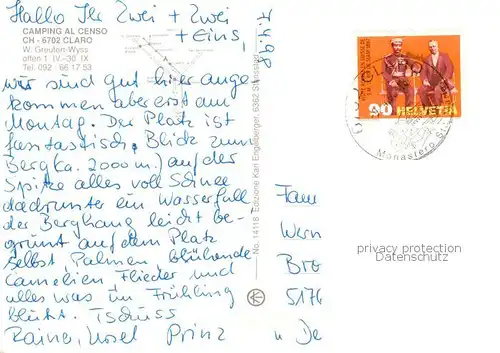 Hallo Ihr Zwei + Zwei
+ Eins,
7.4.98
CAMPING AL CENSO
CH - 6702 CLARO
W. Greuten-Wyss
offen 1. IV.-30. IX
Tel. 092 - 66 17 53
wir sind gut hier ange
kommen aber erst am
Montag. Der Platz ist
fantastisch, Blick zum
Berg (ca. 2000 m) auf der
Spitze alles voll Schnee
dadrunter ein Wasserfall
der Berghang leicht be-
grünt auf dem Platz
selbst, Palmen blühende
Camelien Flieder und
alles was im Frühling
blüht. Tschüss
Rainer, Ursel Prinz
No. 14118 Edizione Karl Engelberger, 6362 Stansstad
90 HELVETIA
Monastero S.
Fam
Wern
Bro
5176
u De
privacy protection
Datenschutz